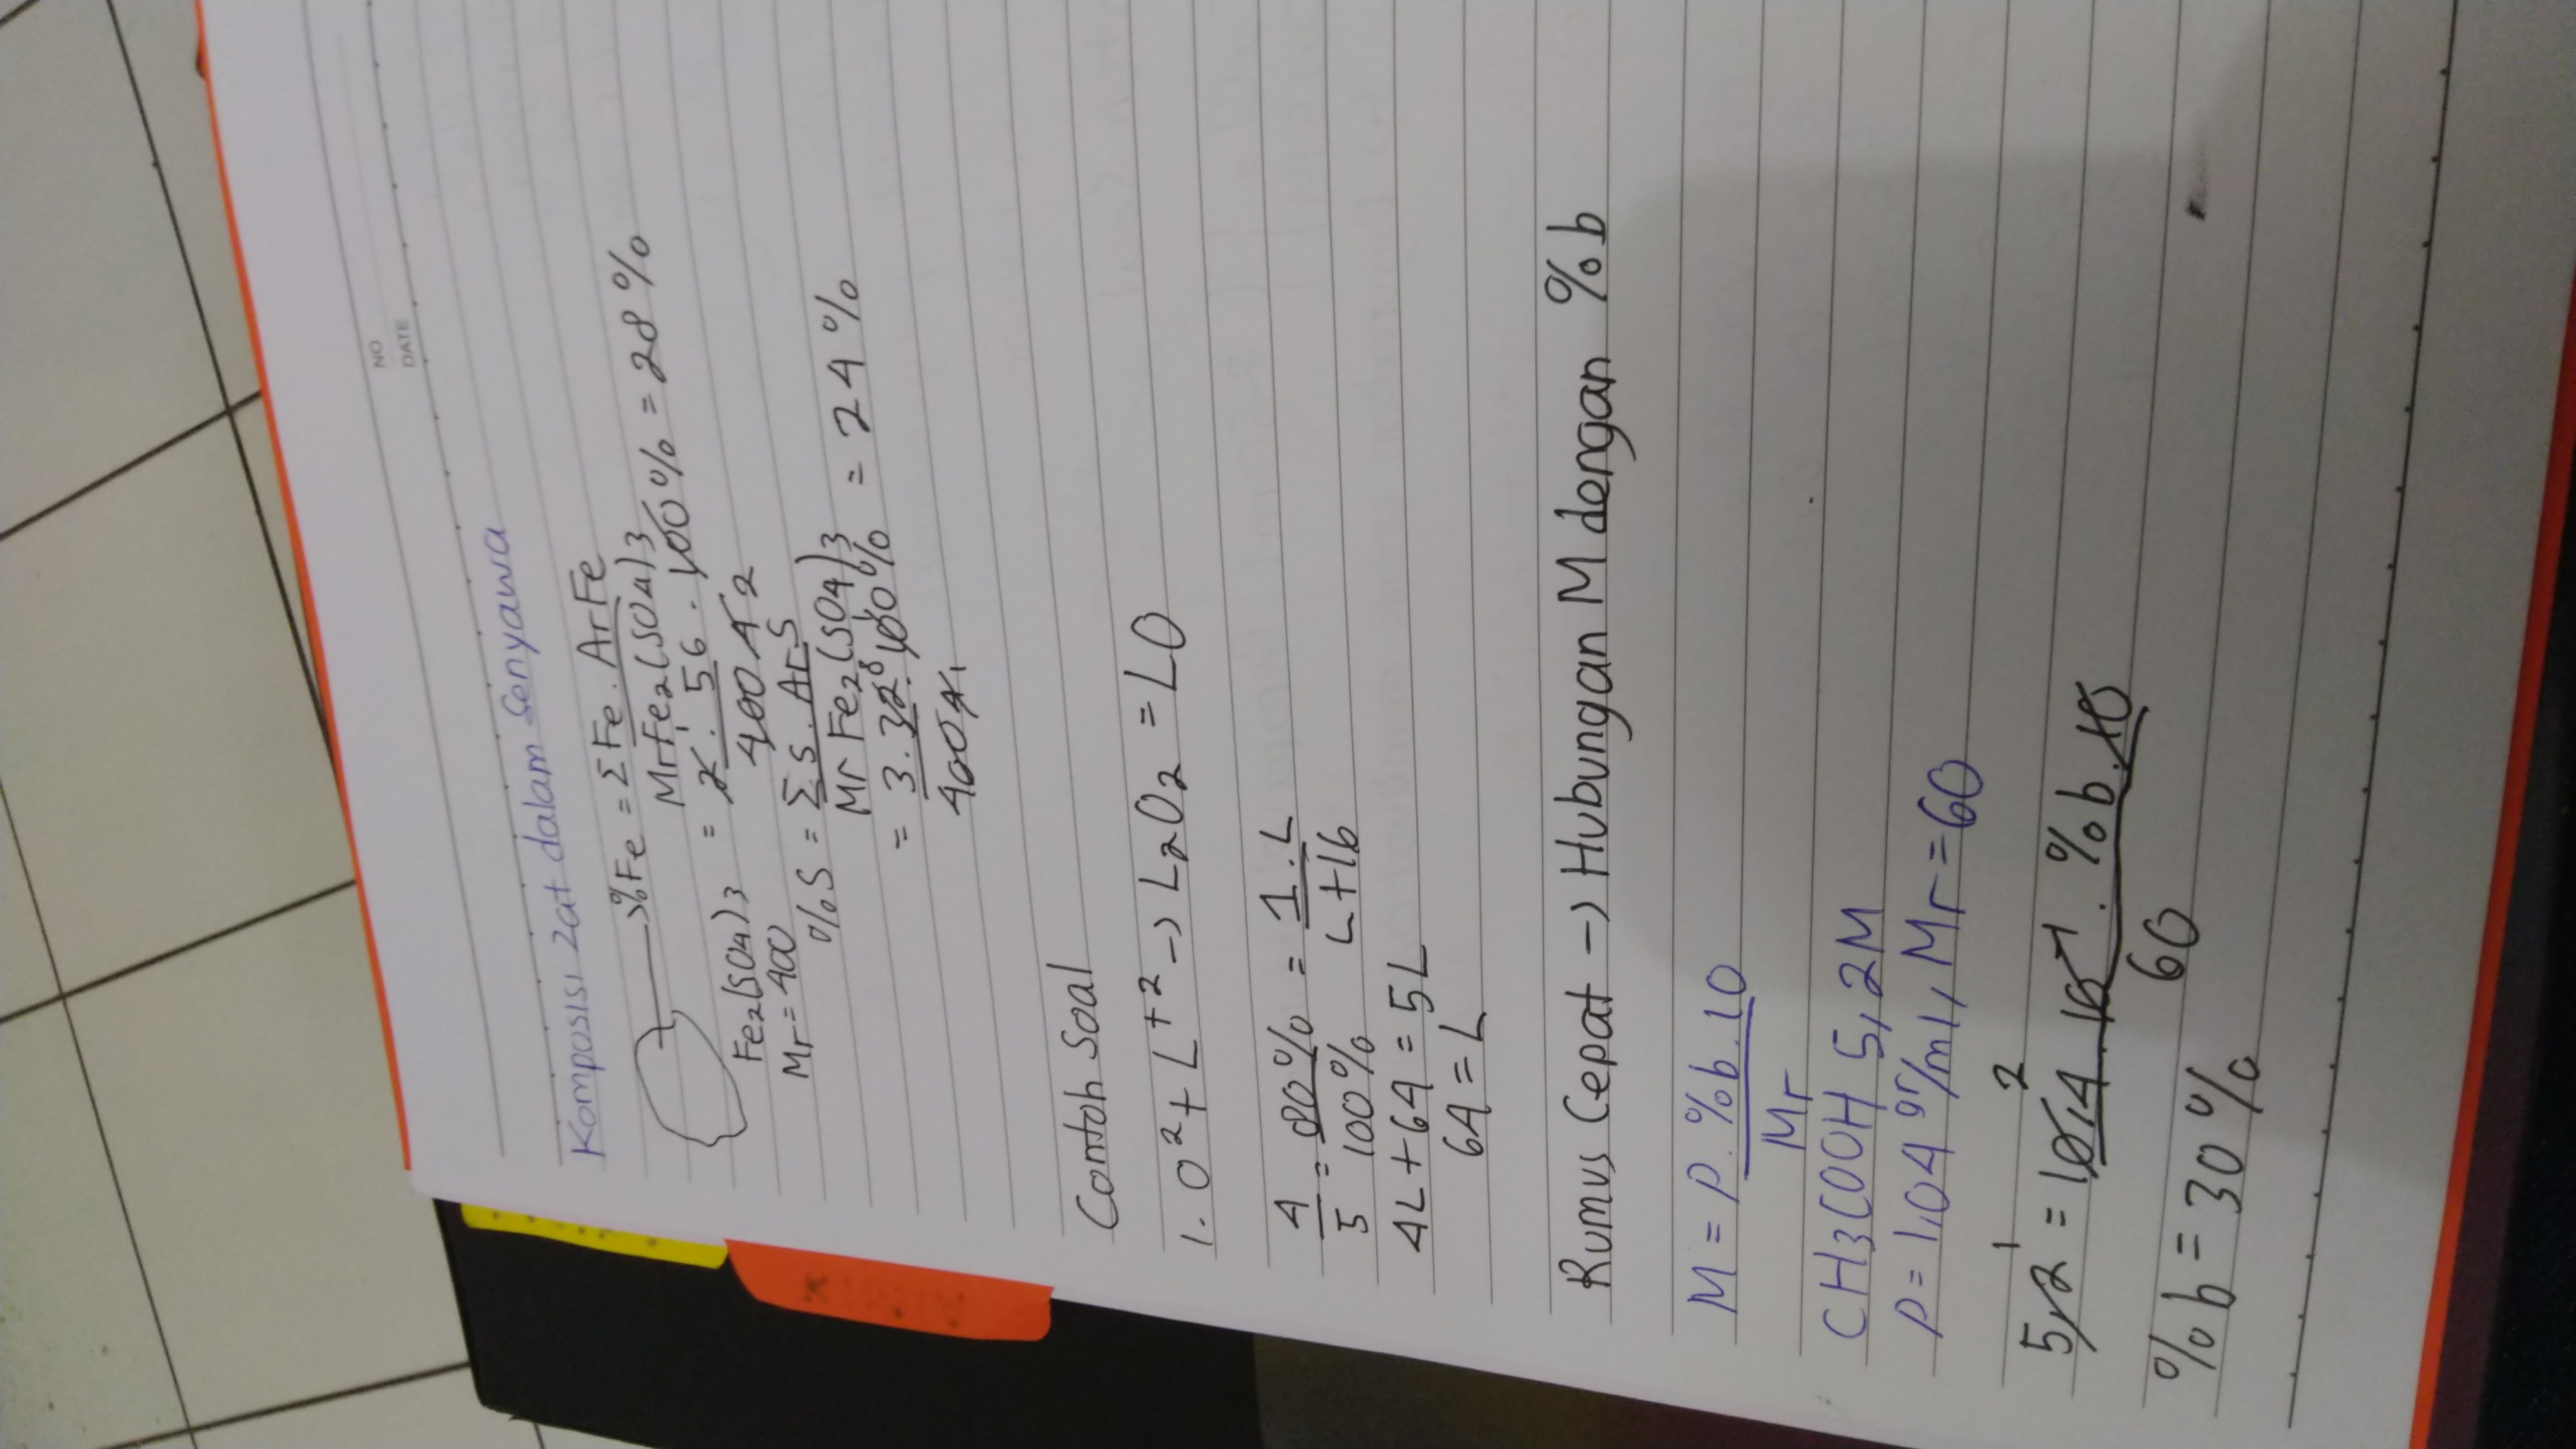 NO
DATE
Komposisi zat dalam Senyawa
%Fe = ΣFe . ArFe
MrFe2(SO4)3
= 2 . 56 . 100% = 28%
1
400 4 2
Fe2(SO4)3
Mr = 400
%S = ΣS . ArS
Mr Fe2(SO4)3
= 3.32 8 . 100% = 24%
1
400 4 1
Contoh Soal
1. O² + L⁺² -> L2O2 = LO
4/5 = 80%/100% = 1.L/L+16
4L+64 = 5L
64 = L
Rumus Cepat -> Hubungan M dengan %b
M = ρ.%b.10
Mr
CH3COOH 5,2M
ρ = 1,04 gr/ml, Mr = 60
1 2
5,2 = 10,4 . 10⁻¹ . %b.10
60
%b = 30%